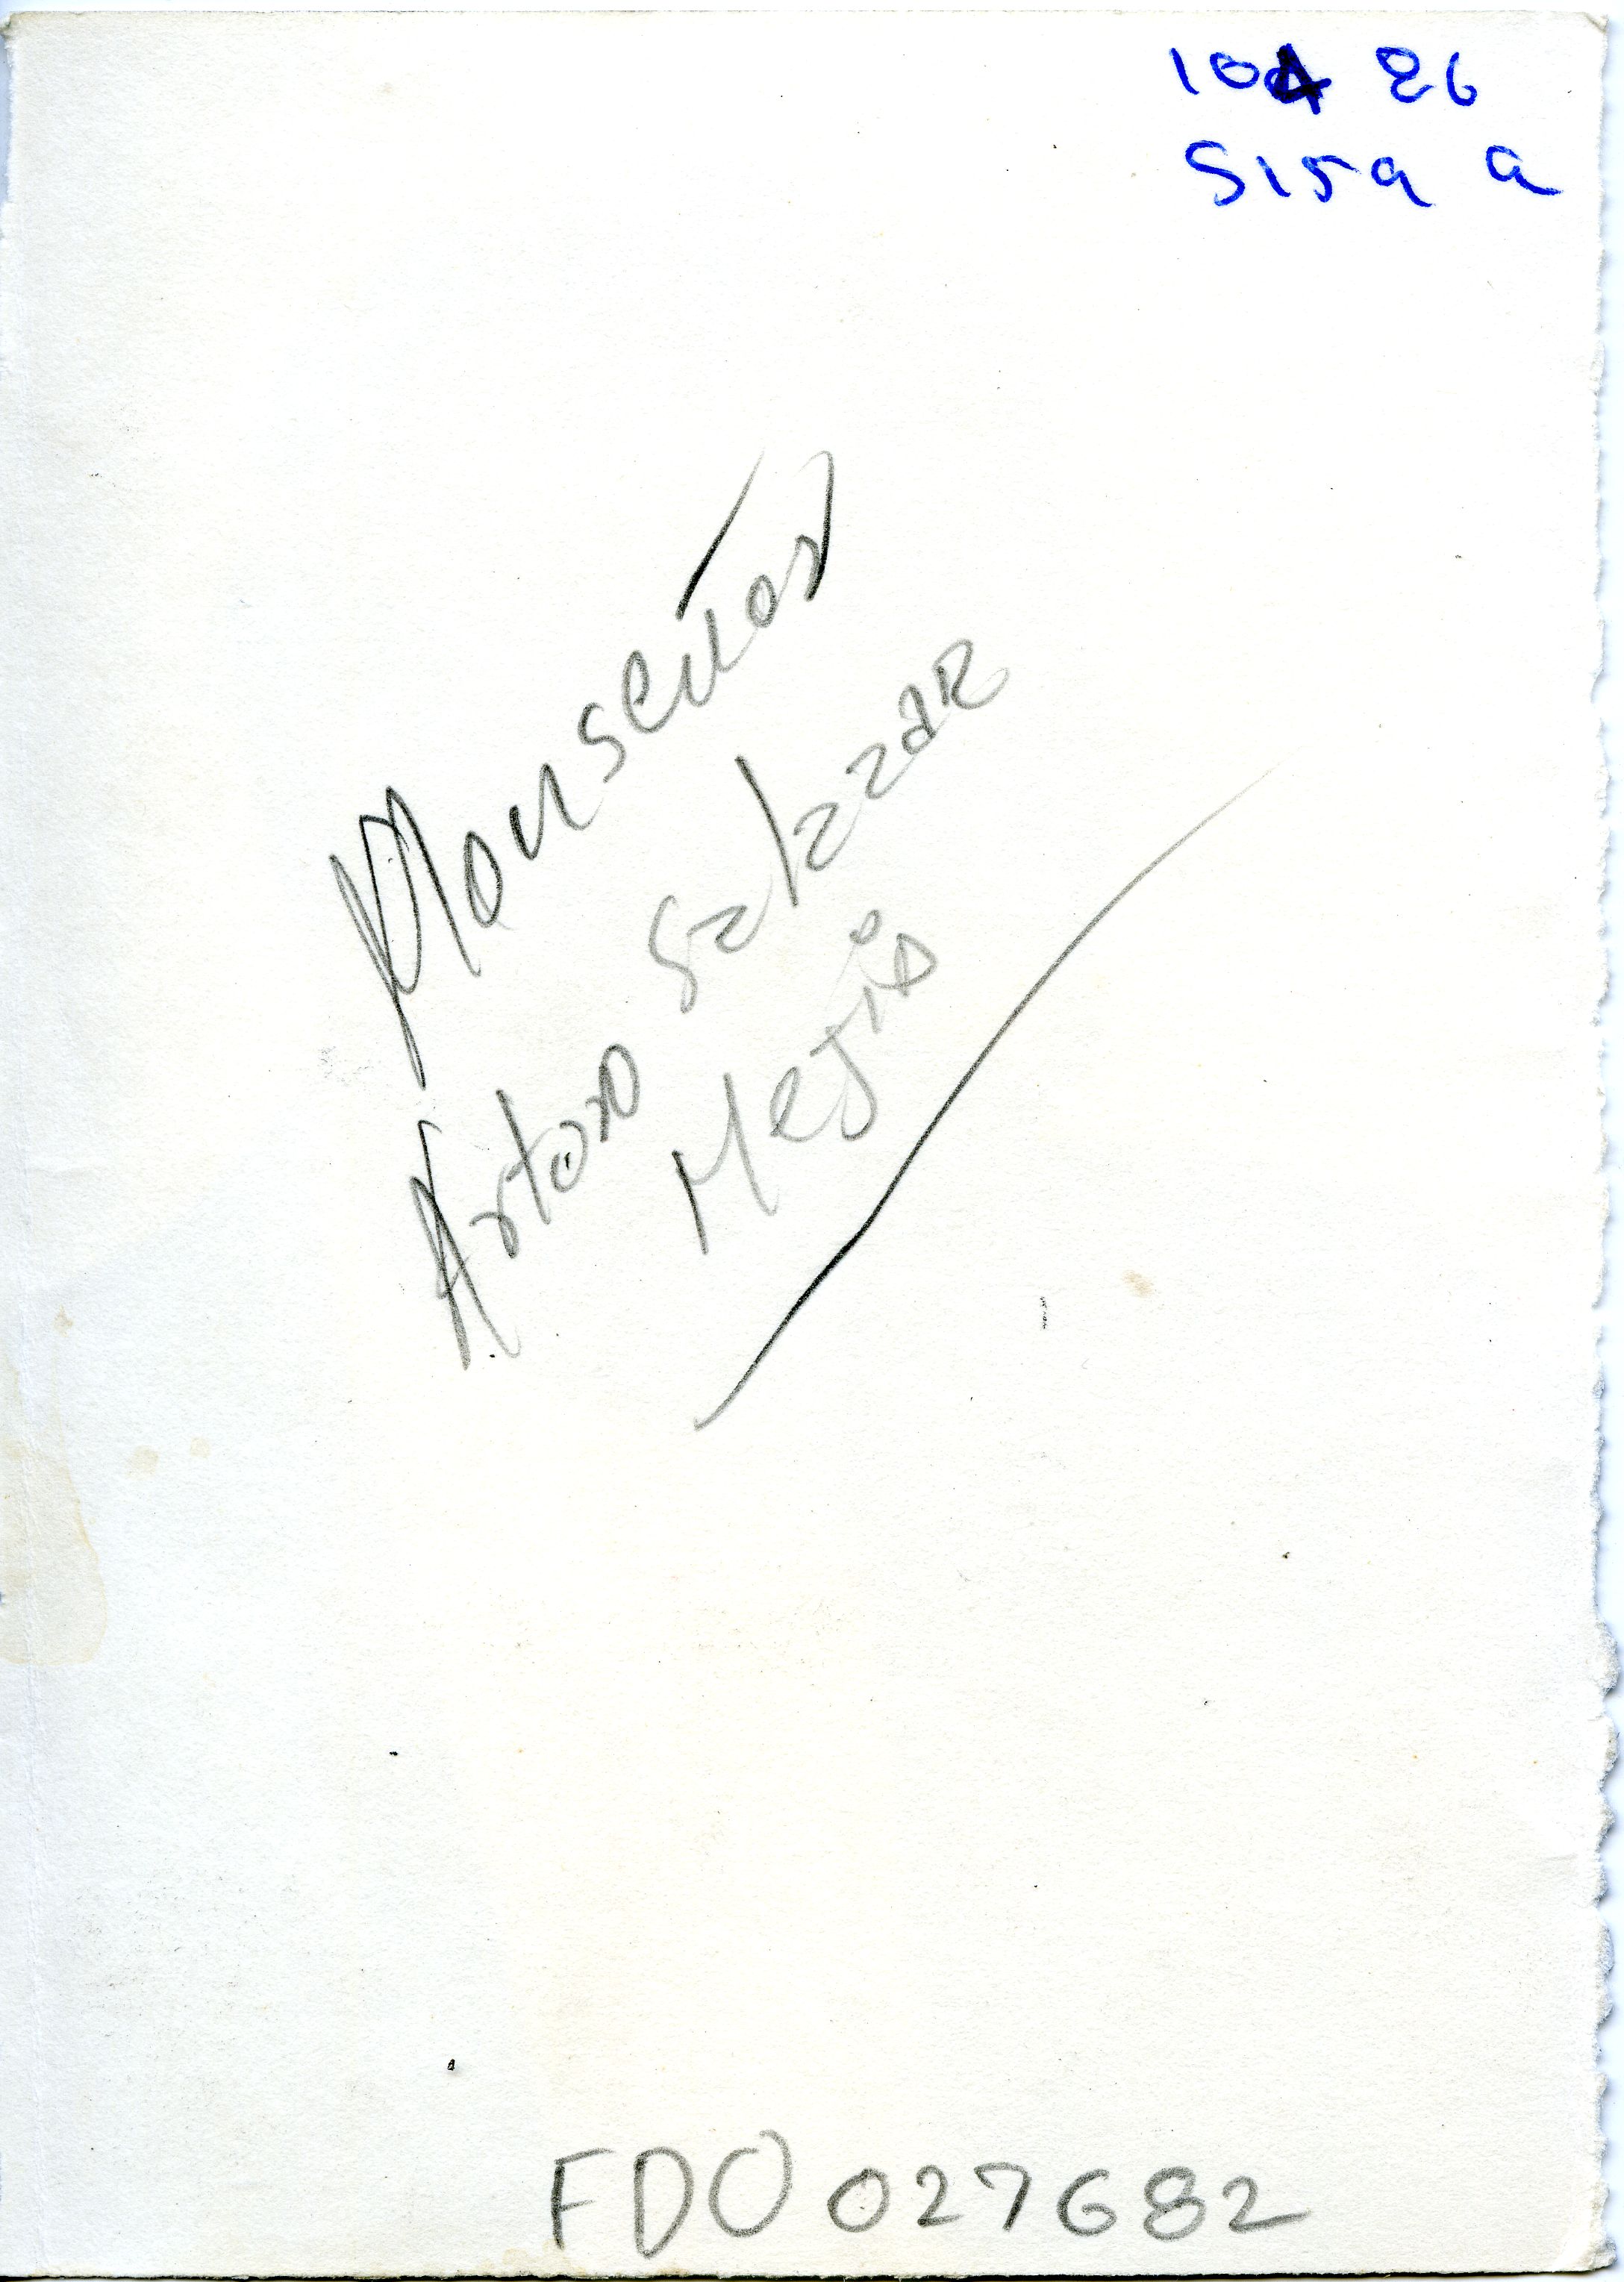 104 26
S159 a
Monseñor
Arturo Salazar
Mejía
FDO 027682